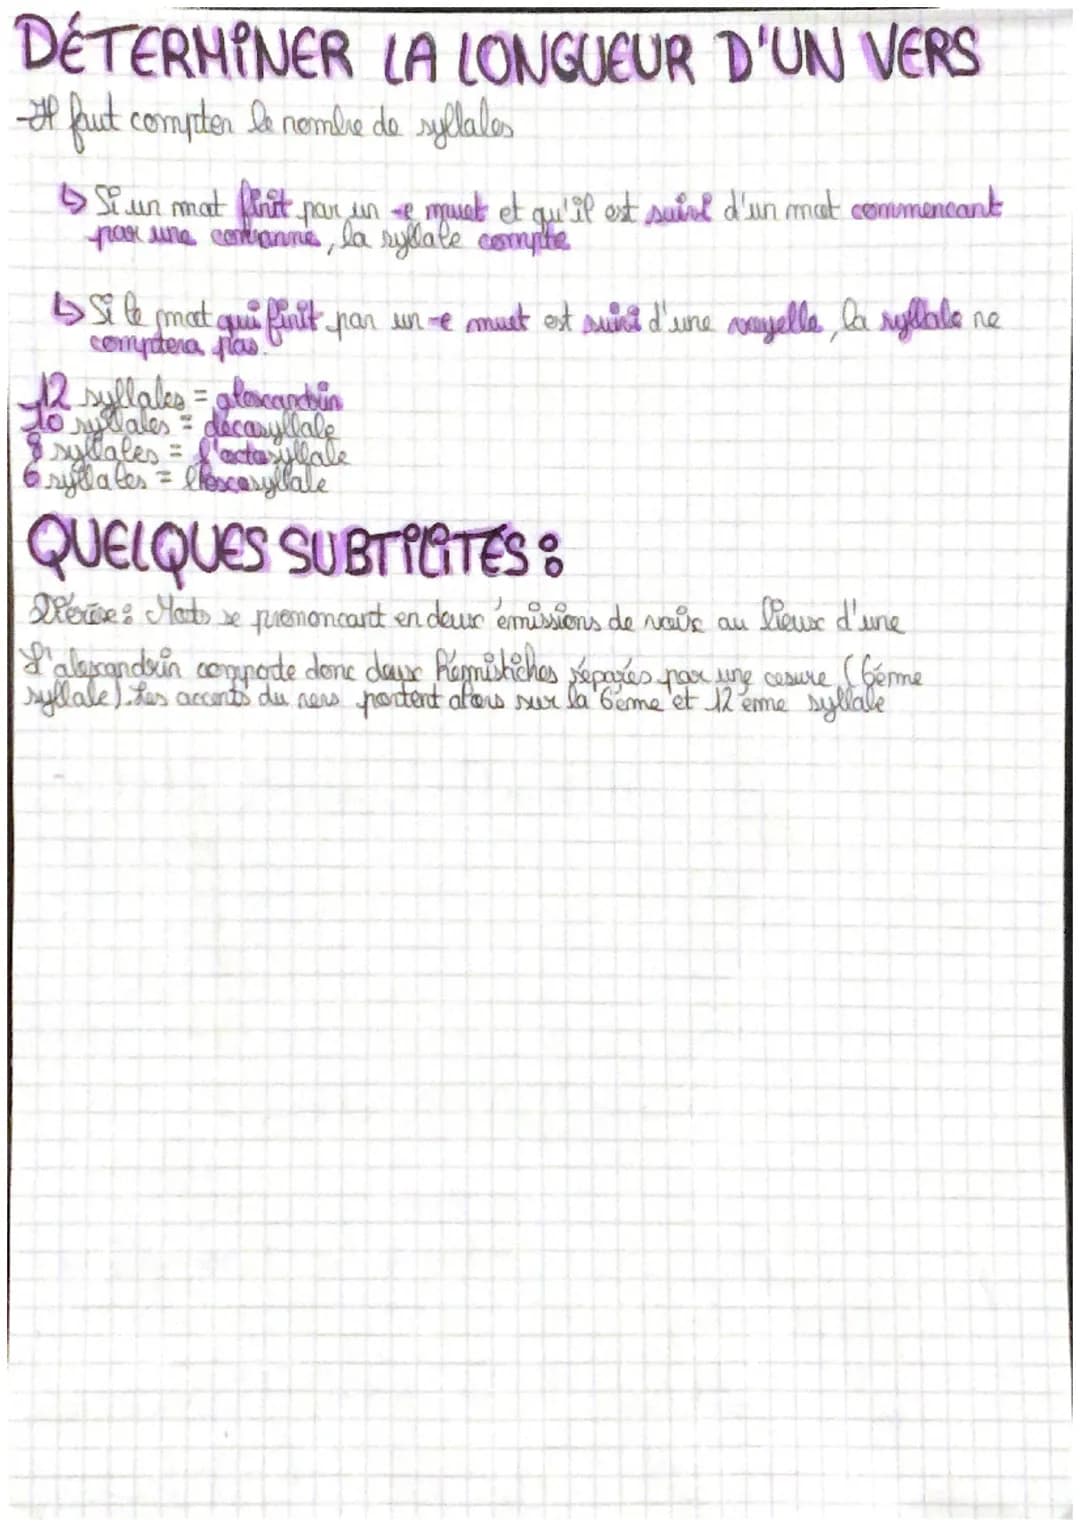 DÉTERMINER LA LONGUEUR D'UN VERS
-Il faut compter le nombre de syllabes
↳ Si un mot finit par un -e muet et qu'il est suivi d'un mot commencant
par une consonne, la syllabe compte
↳ Si le mot qui finit par un -e muet est suivi d'une voyelle, la syllabe ne
comptera pas.
12 syllabes = alexandrin
10 syllabes = décasyllabe
8 syllabes = l'octosyllabe
6 syllabes = l'hexasyllabe
QUELQUES SUBTILITÉS :
Diérèse : Mots se prononcant en deux émissions de voix au lieux d'une
L'alexandrin comporte donc deux hémistiches séparés par une cesure (6éme
syllabe). Les accents du vers portent alors sur la 6éme et 12 éme syllabe